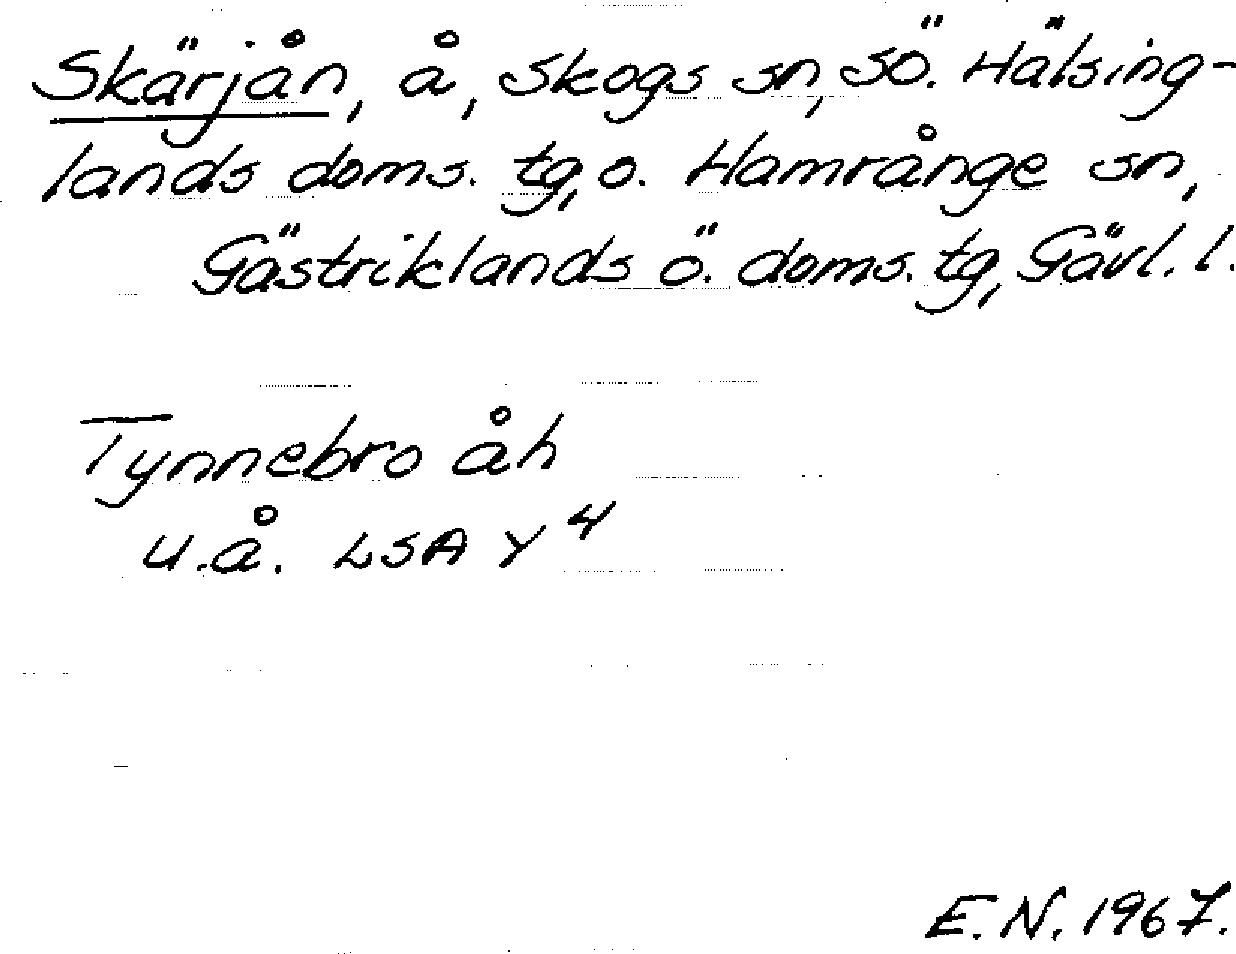 Skärjån, å, Skogs sn, SÖ. Hälsing-
lands doms. tg, o. Hamrånge sn,
Gästriklands ö. doms. tg, Gävl. l.
Tynnebro åh
u.å. LSA Y 4
E.N. 1967.